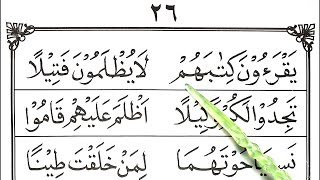 ٢٦
يَقْرَءُوْنَ كِتٰبَهُمْ لَا يُظْلَمُوْنَ فَتِيْلًا
تَجِدُوْا لَكُمْ وَكِيْلًا اَظْلَمَ عَلَيْهِمْ قَامُوْا
نَسِيَا حُوْتَهُمَا لِمَنْ خَلَقْتَ طِيْنًا